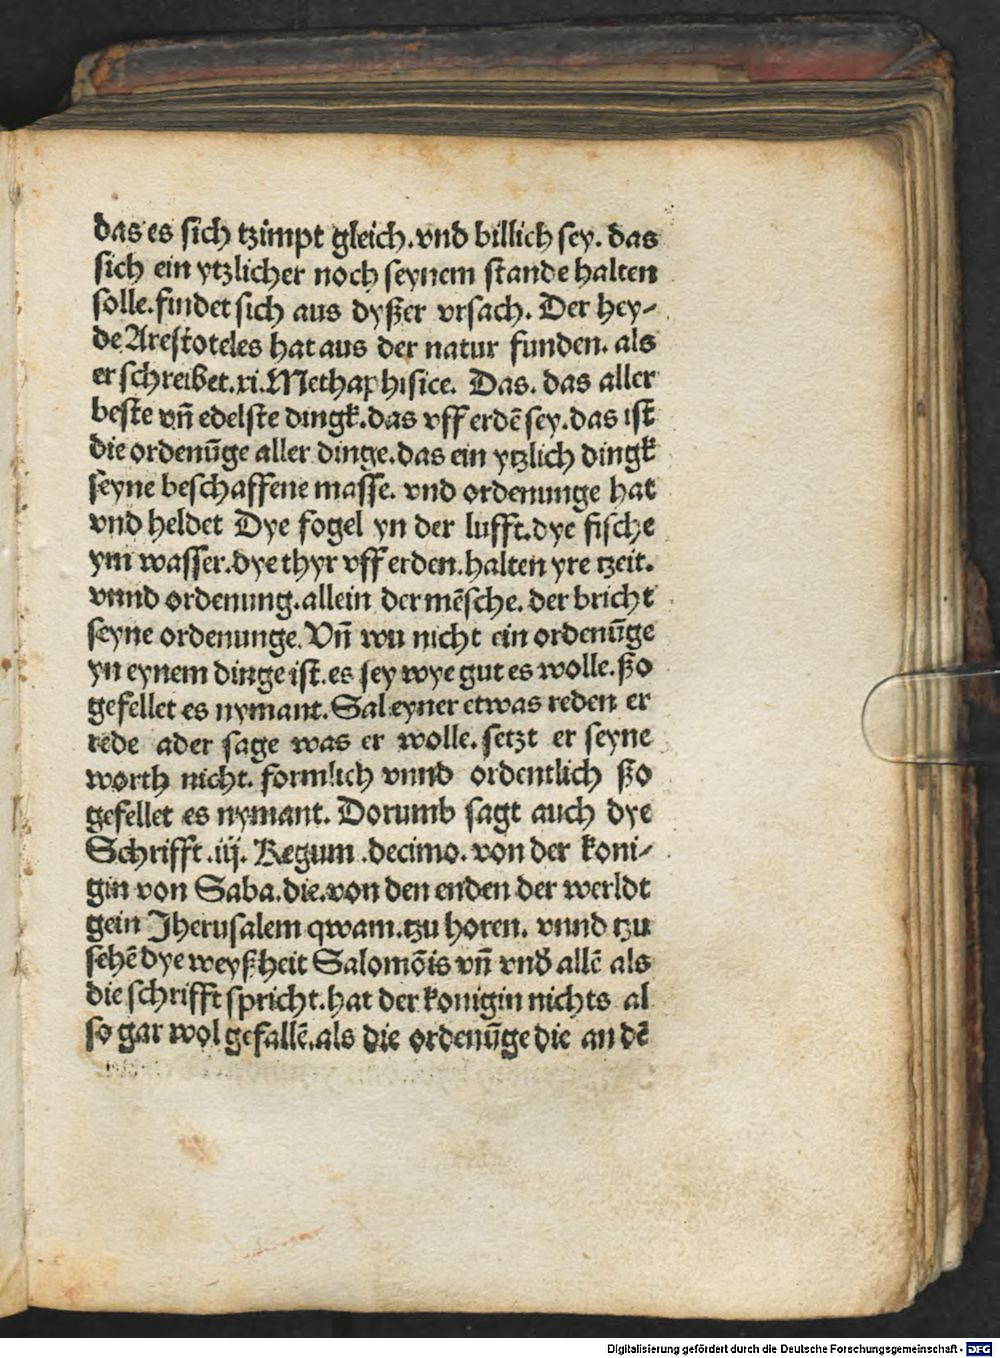 das es sich tzimpt gleich. vnd billich sey. das
sich ein ytzlicher noch seynem stande halten
solle. findet sich aus dyßer vrsach. Der hey-
de Arestoteles hat aus der natur funden. als
er schreibet. xi. Methaphisice. Das. das aller
beste vn̄ edelste dingk. das vff erdē sey. das ist
die ordenūge aller dinge. das ein ytzlich dingk
seyne beschaffene masse. vnd ordenunge hat
vnd heldet Dye fogel yn der lufft. dye fische
ym wasser. dye thyr vff erden. halten yre tzeit.
vnnd ordenung. allein der mēsche. der bricht
seyne ordenunge. Vn̄ wu nicht ein ordenūge
yn eynem dinge ist. es sey wye gut es wolle. ßo
gefellet es nymant. Sal eyner etwas reden er
rede ader sage was er wolle. setzt er seyne
worth nicht. formlich vnnd ordentlich ßo
gefellet es nymant. Dorumb sagt auch dye
Schrifft .iij. Regum .decimo. von der koni-
gin von Saba. die. von den enden der werldt
gein Jherusalem qwam. tzu horen. vnnd tzu
sehē dye weyßheit Salomōis vn̄ vnd̄ allē als
die schrifft spricht. hat der konigin nichts al
so gar wol gefallē. als die ordenūge die an dē
Digitalisierung gefördert durch die Deutsche Forschungsgemeinschaft - DFG